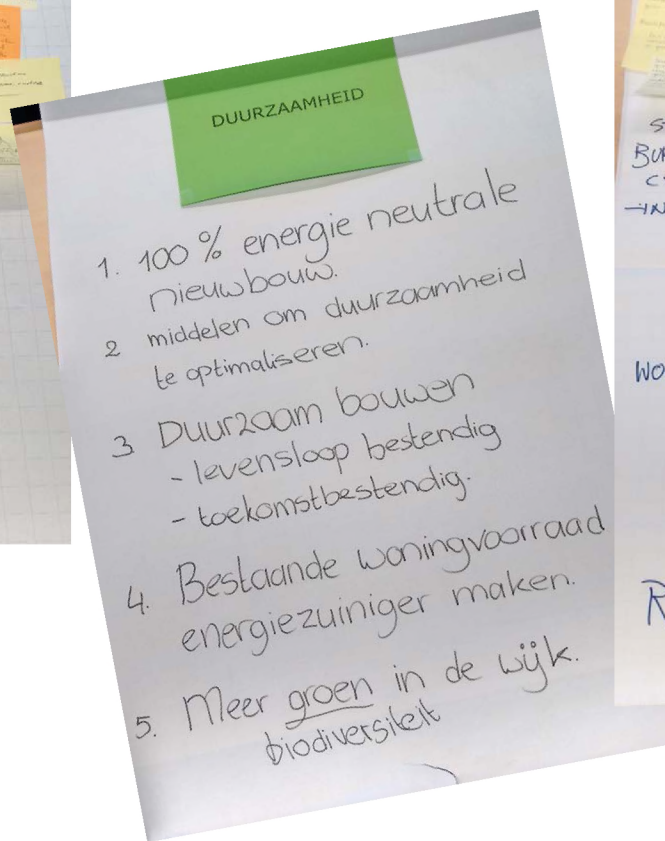 DUURZAAMHEID
1. 100 % energie neutrale
nieuwbouw.
2 middelen om duurzaamheid
te optimaliseren.
3 Duurzaam bouwen
- levensloop bestendig
- toekomstbestendig.
4. Bestaande woningvoorraad
energiezuiniger maken.
5. Meer groen in de wijk.
biodiversiteit